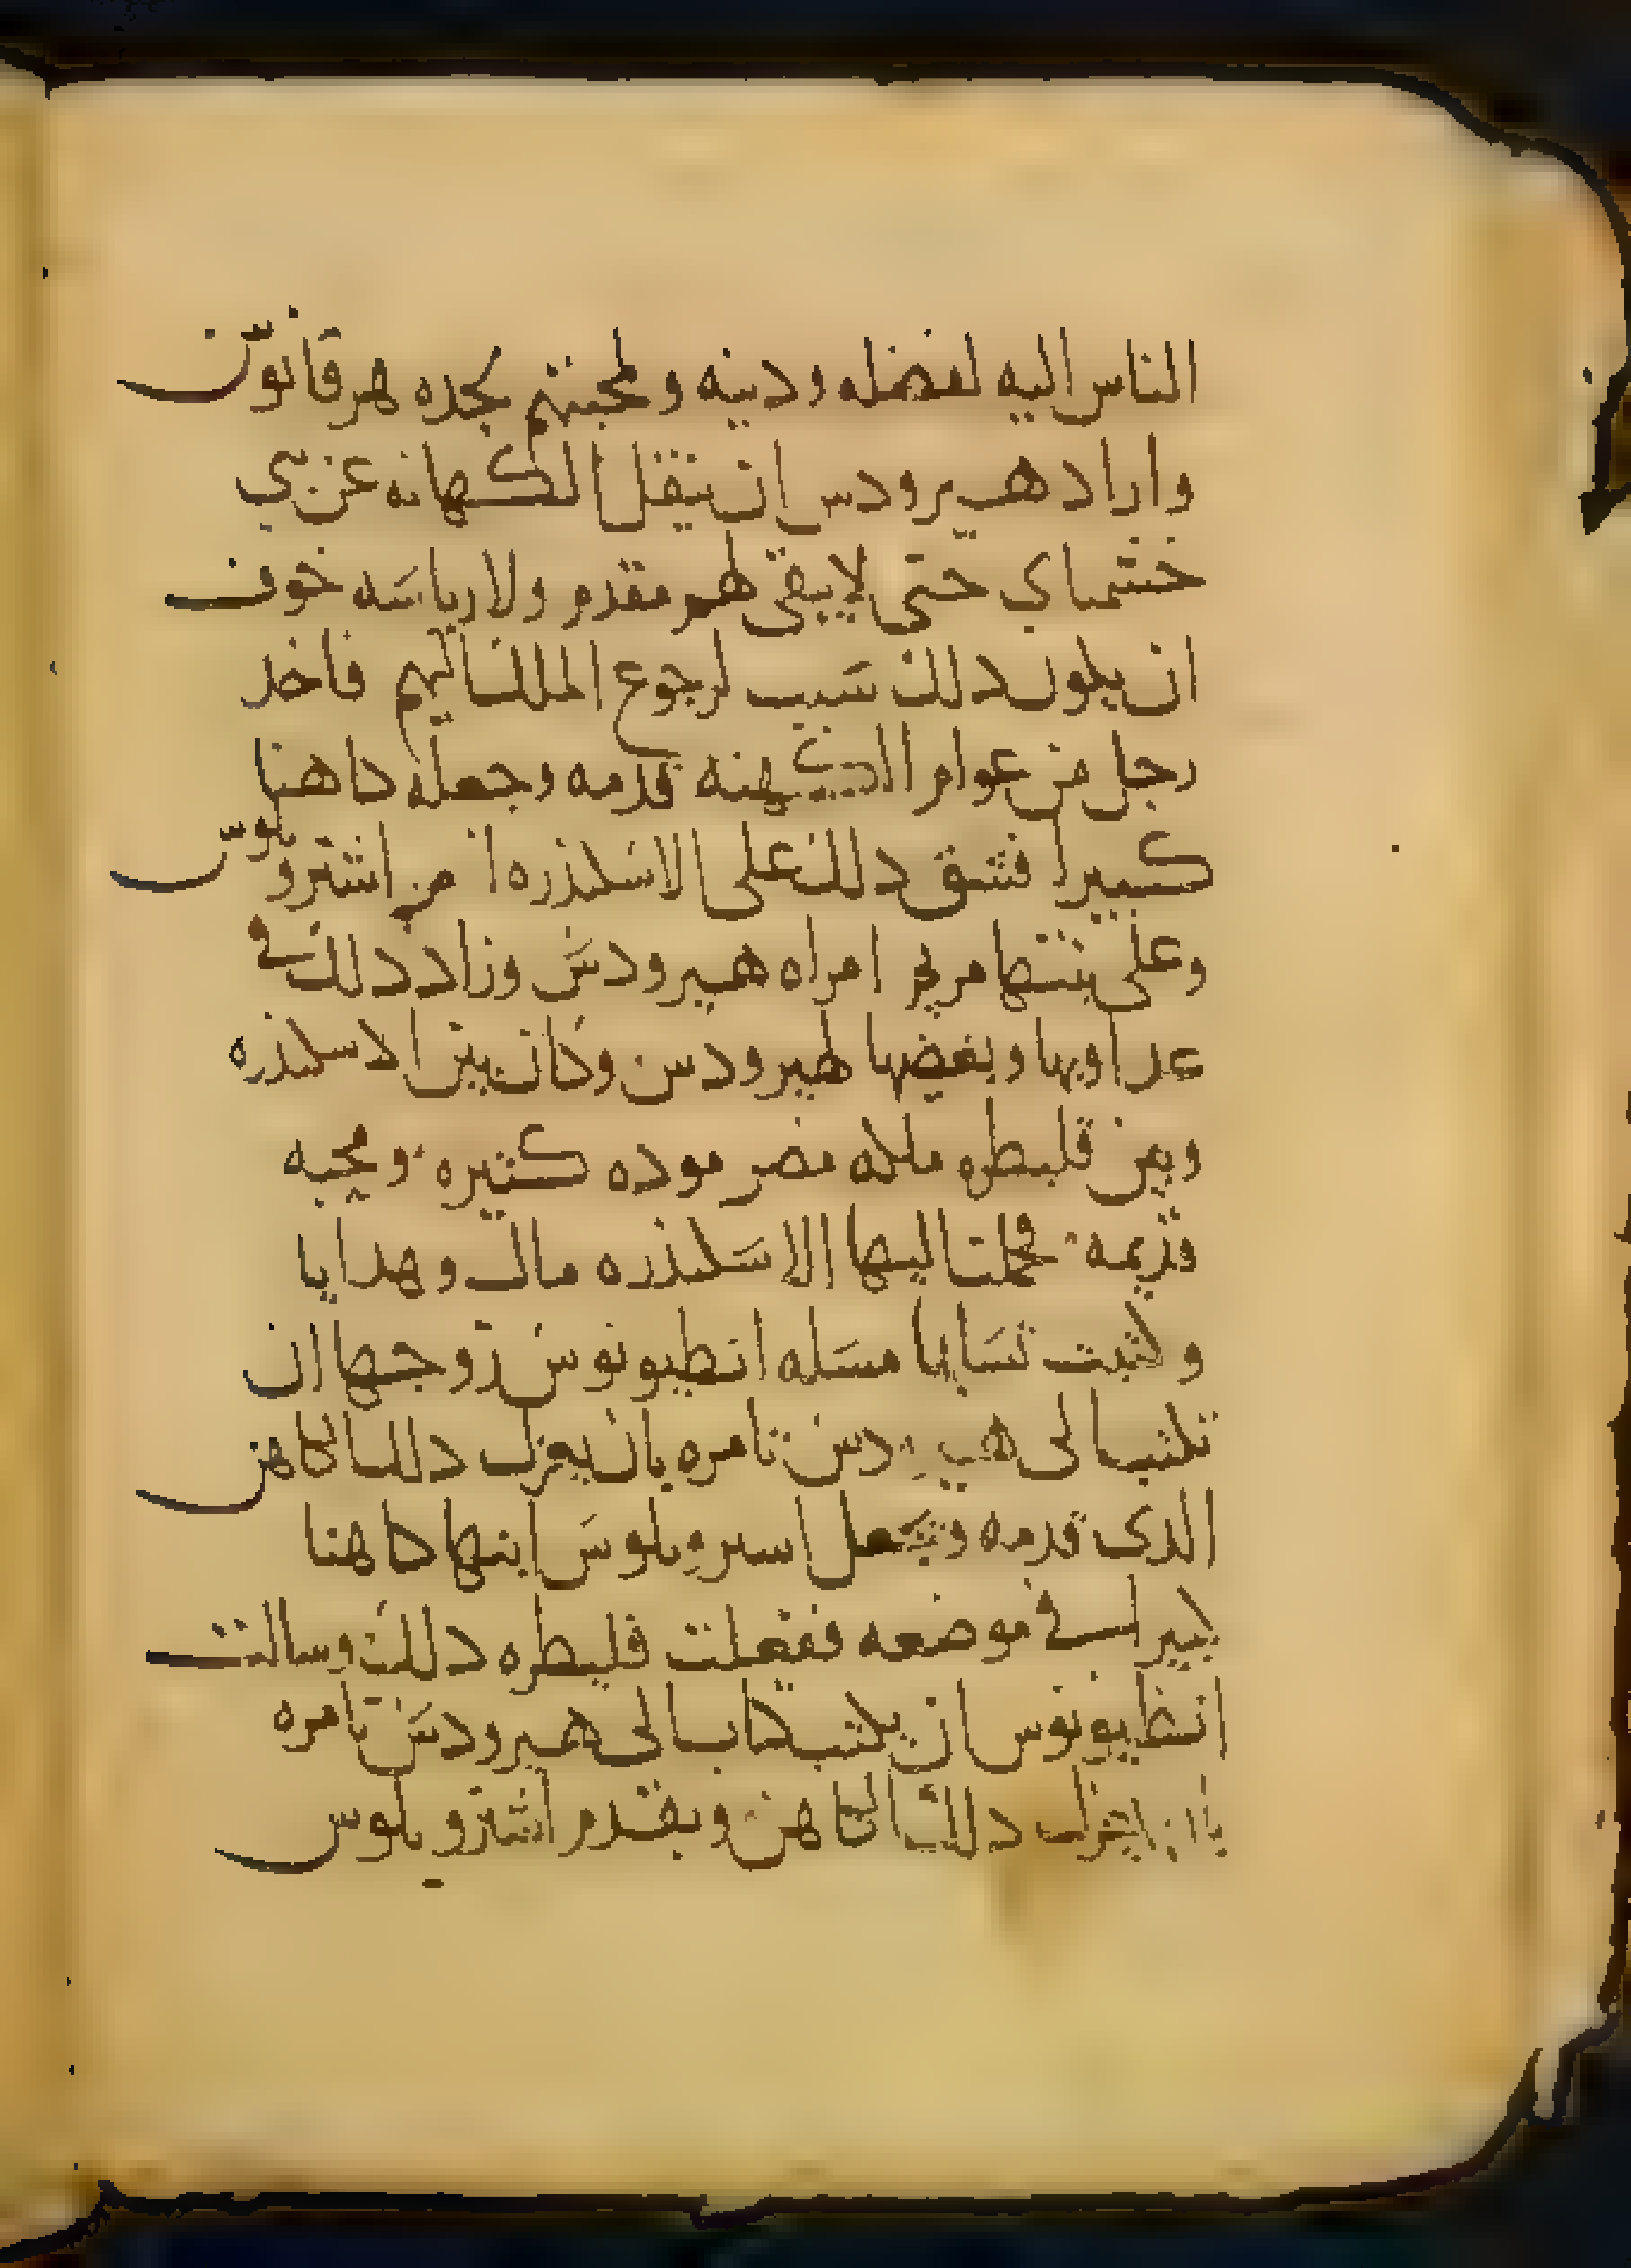 الناس اليه لفضله ودينه ولمحبتهم لجده هرقانوس
واراد هيرودس ان ينقل الكهانه عن بني
خشمناي حتى لا يبقى لهم مقدم ولا رياسه خوف
ان يكون دلك سبب لرجوع الملك اليهم فاخد
رجل من عوام الكهنه قدمه وجعله كاهنا
كبيرا فشق دلك على الاسكندره ام اشتروبلوس
وعلى بنتها مريم امراه هيرودس وزاد دلك في
عداوتها وبغضها لهيرودس وكان بين الاسكندره
وبين قلبطره ملكه مصر موده كثيره ومحبه
قديمه فحملت اليها الاسكندره مال وهدايا
وكتبت تسالها مسله انطيونوس زوجها ان
تكتب الى هيرودس تامره بان يعزل دلك الكاهن
الدى قدمه ويجعل اسروبلوس ابنها كاهنا
كبير في موضعه ففعلت قلبطره دلك وسالت
انطيونوس ان يكتب كتاب الى هيرودس تامره
بان يعزل دلك الكاهن ويقدم اشتروبلوس